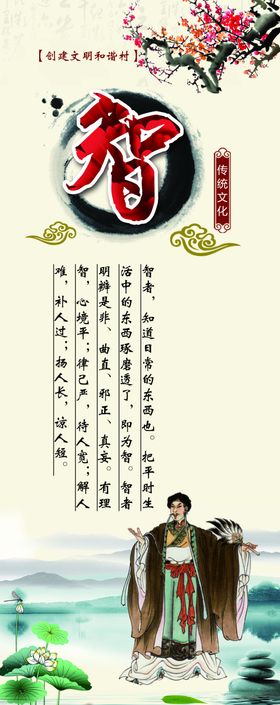 【创建文明和谐村】
智
传统文化
智者，知道日常的东西也。把平时生
活中的东西琢磨透了，即为智。智者
明辨是非、曲直、邪正、真妄。有理
智，心境平；律己严，待人宽；解人
难，补人过；扬人长，谅人短。